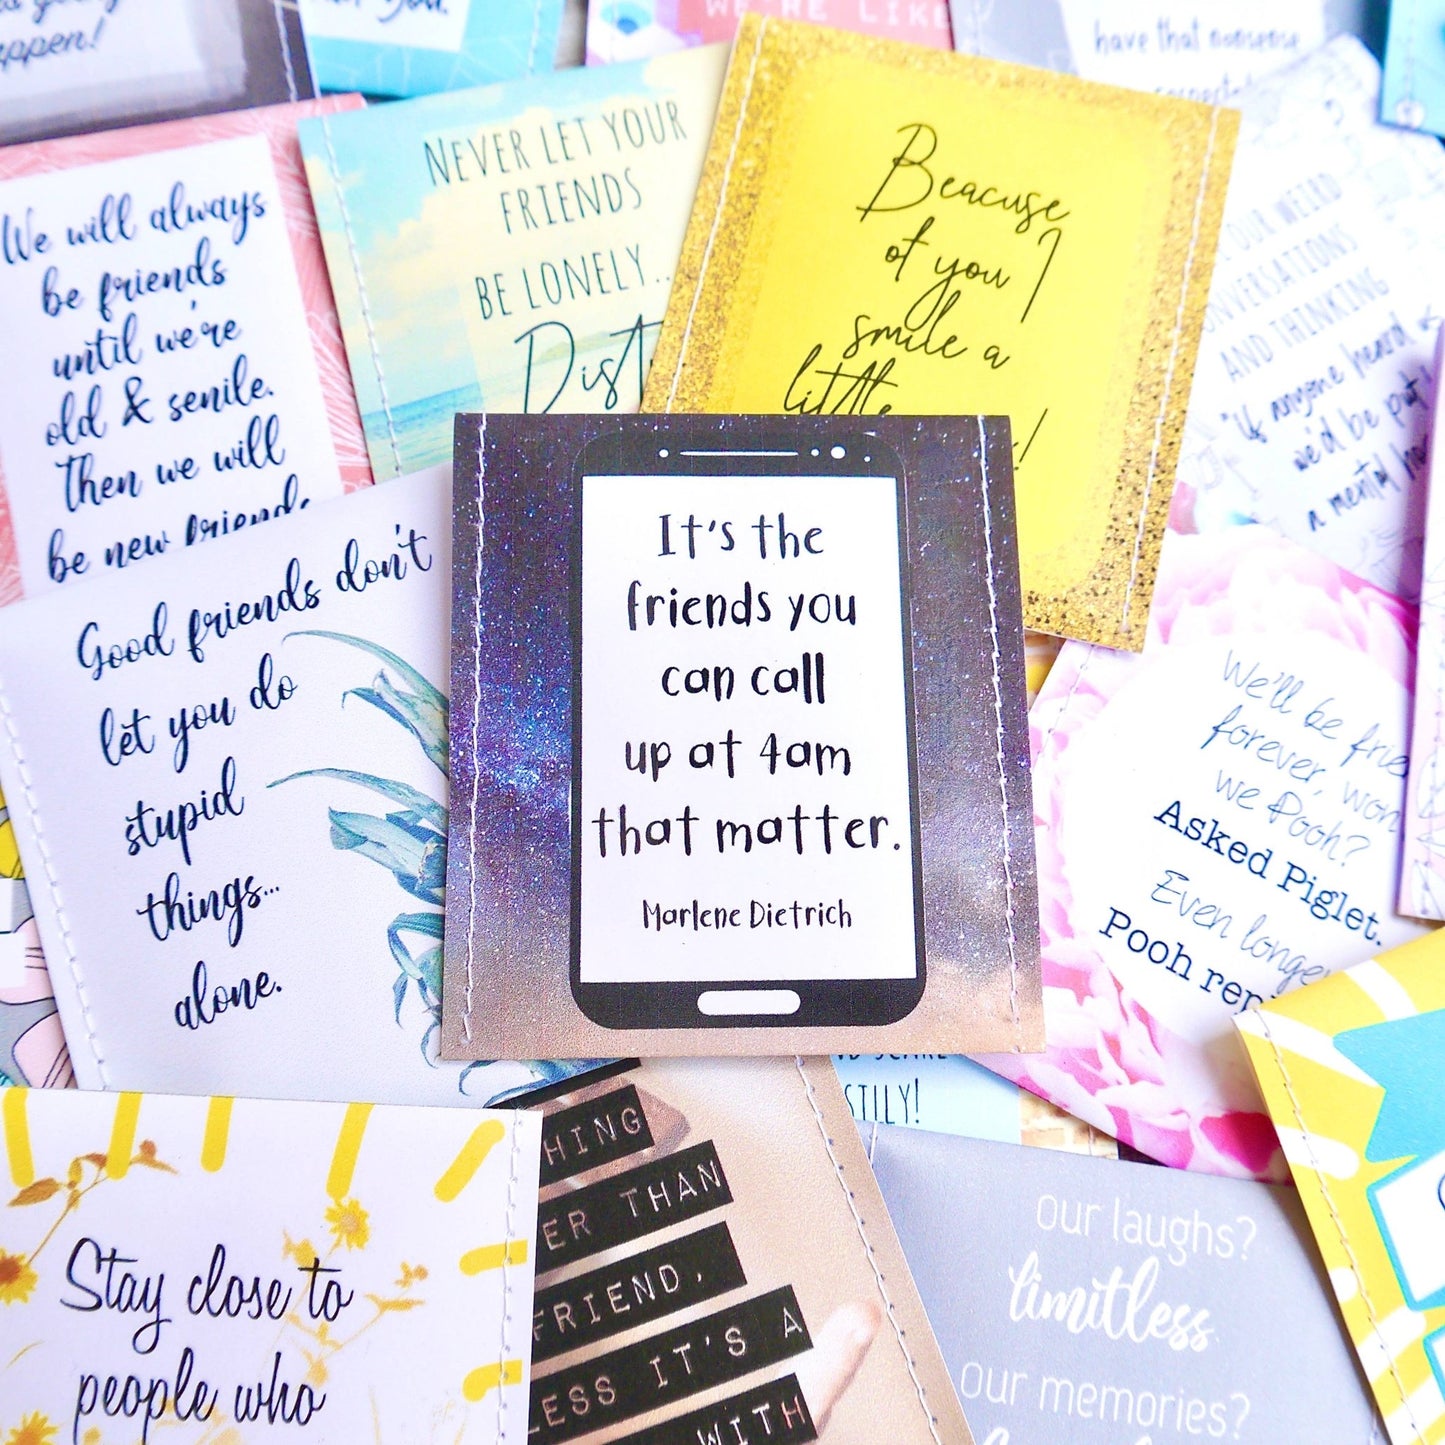 ppen!
WE'RE LIKE
have that nonsense
We will always
be friends
until we're
old & senile.
Then we will
be new friends
NEVER LET YOUR
FRIENDS
BE LONELY...
Beacuse
of you I
smile a
little
!
OUR WEIRD
AND THINKING
"if anyone heard
we'd be put
a mental
Good friends don't
let you do
stupid
things...
alone.
It's the
friends you
can call
up at 4am
that matter.
Marlene Dietrich
We'll be
forever, won
we Pooh?
Asked Piglet.
Even longer
Pooh
STILY!
HING
ER THAN
FRIEND,
LESS IT'S A
WITH
Stay close to
people who
our laughs?
limitless
our memories?